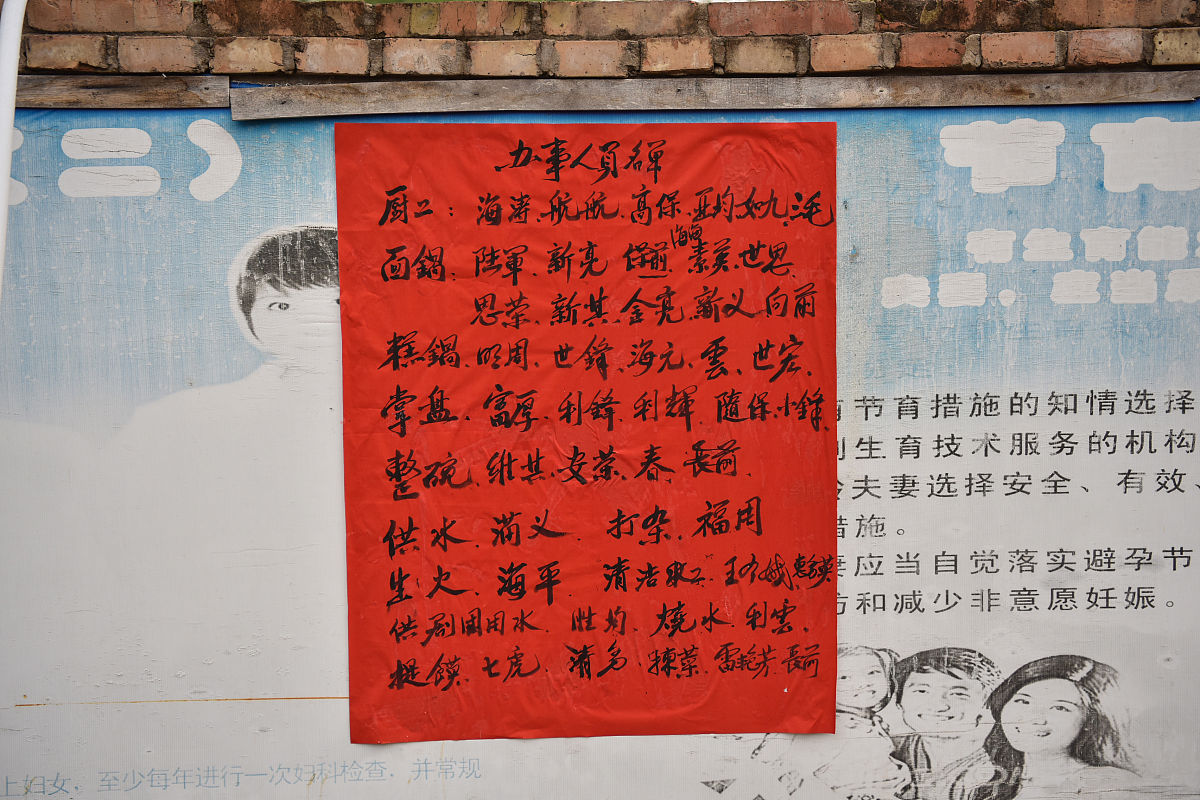 办事人员名单
厨工：海涛、航航、高保、亚均、如九、三毛
海海
面鍋、陆軍、新亮 保前、素英、世恩、
思荣、新其、金亮、新义、向前
糕鍋、明周、世鋒、海元、雲、世宏、
掌盘、富厚、利鋒、利輝、隨保、小鋒、
整碗、维其、安荣、春、長前、
供水、满义、打杂、福用
生火、海平、清洁
供刷国用水、胜均、燒水、利雲、
提馍、七虎、清 、揀菜、雷艳芳、長前
节育措施的知情选择
生育技术服务的机构
夫妻选择安全、有效、
措施。
妻应当自觉落实避孕节
和减少非意愿妊娠。
上妇女，至少每年进行一次妇科检查，并常规